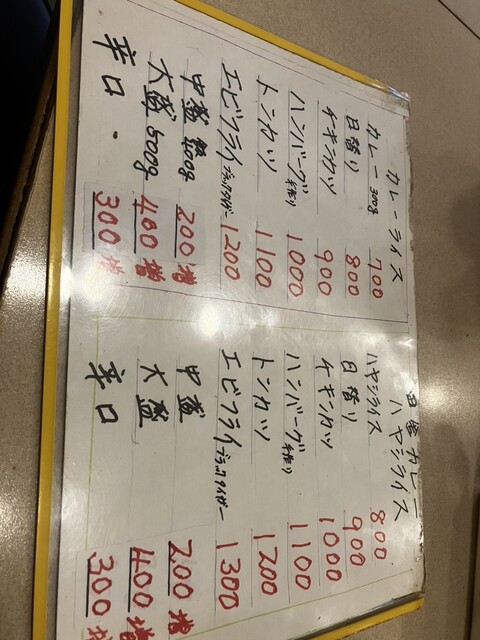 カレーライス
カレー 300g 700
日替り 800
チキンカツ 900
ハンバーグ 手作り 1000
トンカツ 1100
エビフライ ブラックタイガー 1200
中盛 400g 200増
大盛 500g 400増
辛口 300増
カレー
ハヤシライス
ハヤシライス 800
日替り 900
チキンカツ 1000
ハンバーグ 手作り 1100
トンカツ 1200
エビフライ ブラックタイガー 1300
中盛 200増
大盛 400増
辛口 300増